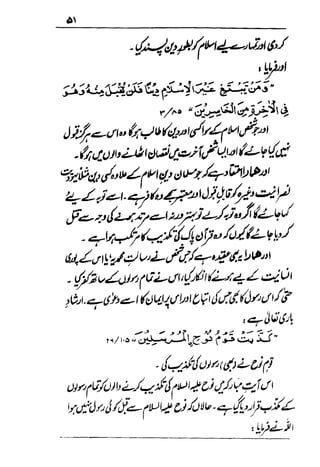 ۵۱
کردی اور تمہارے لیے اسلام کو بطور دین پسند کیا۔
اور فرمایا:
"وَمَنْ يَبْتَغِ غَيْرَ الْاِسْلَامِ دِيْنًا فَلَنْ يُقْبَلَ مِنْهُ وَهُوَ
فِي الْاٰخِرَةِ مِنَ الْخَاسِرِيْنَ" ۳/۸۵
اور جو شخص اسلام کے سوا کسی اور دین کا طالب ہوگا وہ اس سے ہرگز قبول
نہیں کیا جائے گا اور ایسا شخص آخرت میں نقصان اٹھانے والوں میں ہوگا۔
اور ہمارا اعتقاد ہے کہ جو مسلمان دین اسلام کے علاوہ کسی دین مثلاً یہودیت
نصرانیت وغیرہ کو قابل قبول اور معتبر سمجھے وہ کافر ہے۔ اسے توبہ کے لیے
کہا جائے گا اگر وہ توبہ کرلے تو بہتر ورنہ اسے مرتد ہونے کی وجہ سے قتل
کر دیا جائے گا کیوں کہ وہ قرآن پاک کی تکذیب کا مرتکب ہوا ہے۔
اور ہمارا یہ بھی عقیدہ ہے کہ جس شخص نے رسالت محمدیہ یا اس کے پوری
انسانیت کے لیے ہونے کا انکار کیا، اس نے تمام رسولوں کے ساتھ کفر کیا۔
حتیٰ کہ اس رسول کا بھی جس کی اتباع اور اس پر ایمان کا اسے دعویٰ ہے۔ ارشاد
باری تعالیٰ ہے:
"كَذَّبَتْ قَوْمُ نُوْحِ الْمُرْسَلِيْنَ" ۲۶/۱۰۵
قوم نوح نے (بھی) رسولوں کی تکذیب کی۔
اس آیت مبارکہ میں نوح علیہ السلام کی تکذیب کرنے والوں کو تمام رسولوں
کے مکذب قرار دیا گیا ہے۔ حالاں کہ نوح علیہ السلام سے قبل کوئی رسول نہیں ہوا
اللہ نے فرمایا: